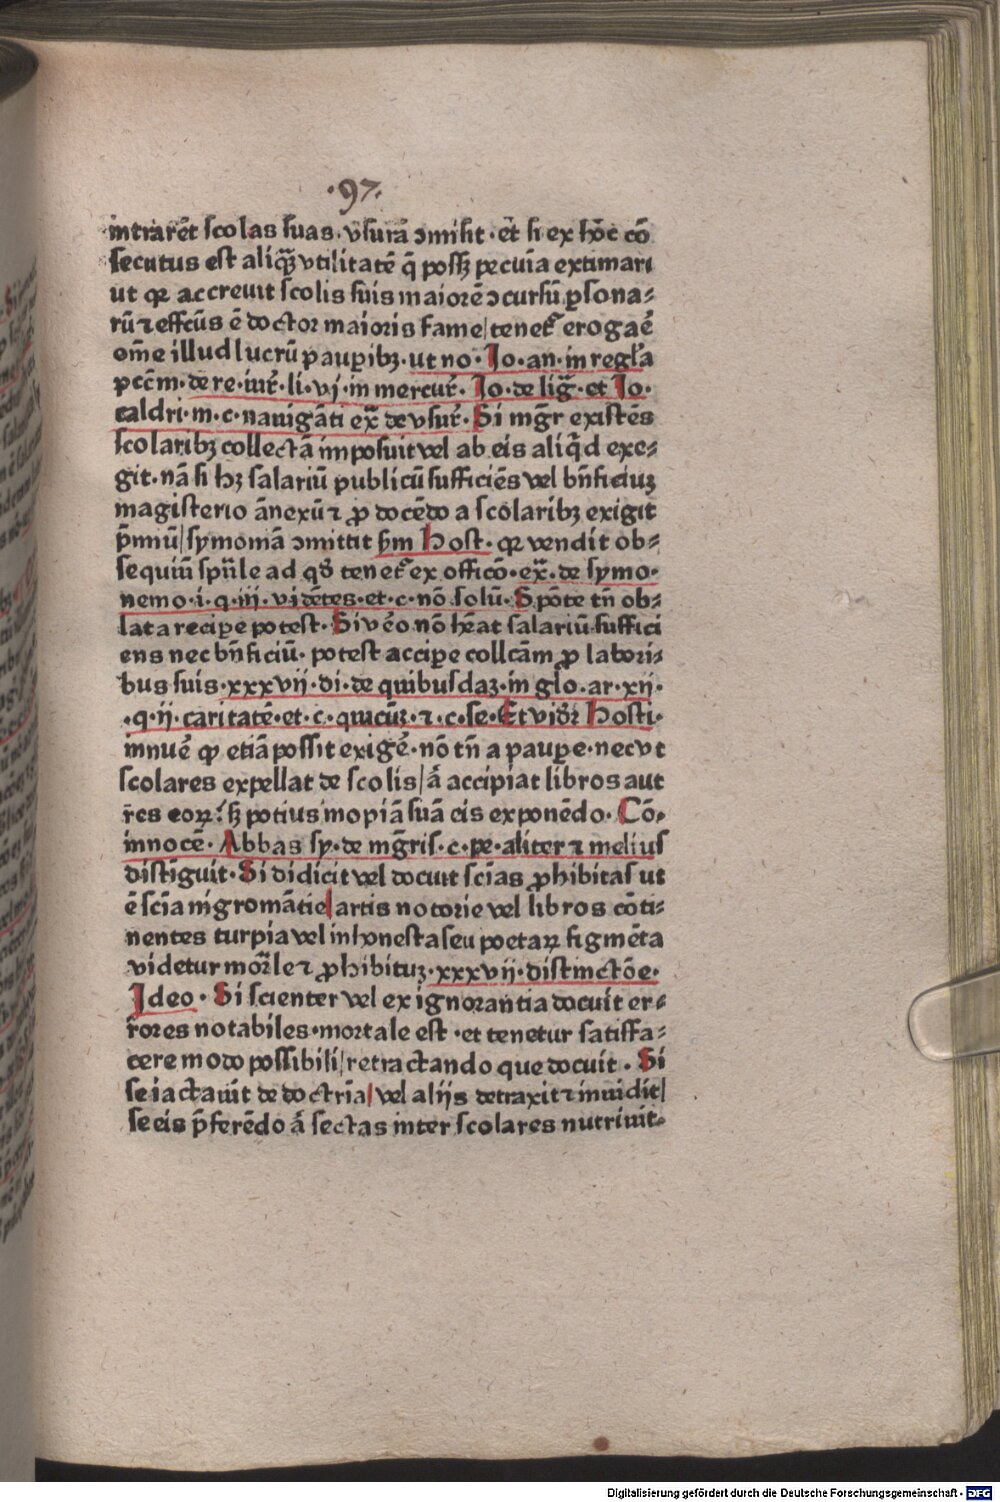 .97.
intrarēt scolas suas. vsurā ↄmisit. et̄ si ex hōc cō
secutus est aliq̄ꝫ vtilitatē q̄ possꝫ pecūia extimari
ut qꝛ accreuit scolis suis maiorē ↄcursū ꝑsona⸗
rū ⁊ effcūs ē doctor maioris fame/ tenet᷑ erogaē
om̄e illud lucrū pauꝑibꝫ. ut no. Jo. an. in regl̄a
pctm̄. de re. iur̄. li. vj. in mercur̄. Jo. de liḡ. et Jo.
caldri. m. c. nauigāti ex̄ de vsur̄. Si mgr̄ existēs
scolaribꝫ collectā imposuit vel ab eis aliq̄d exe⸗
git. nā si hꝫ salariū publicū sufficiēs vel bn̄ficiuꝫ
magisterio ānexū ⁊ ꝓ docēdo a scolaribꝫ exigit
p̄miū/ symoniā ↄmittit sm̄ Host. qꝛ vendit ob⸗
sequiū spūle ad qd̄ tenet᷑ ex officō. ex̄. de symo.
nemo. i. q. iii. vidētes. et. c. nō solū. Spōte tn̄ ob⸗
lata recipe potest. Si vēo nō hēat salariū suffici
ens nec bn̄ficiū. potest accipe collcām ꝓ labori⸗
bus suis. xxxvij. di. de quibusdaꝫ. in glo. ar. xij.
.q. ij. caritatē. et. c. quicūꝫ. ⁊. c. se. Et vidr̄ Hosti.
innuē ꝙ etiā possit exigē. nō tn̄ a paupe. nec vt
scolares expellat de scolis/ ā accipiat libros aut
res eoꝝ: sꝫ potius inopiā suā eis exponēdo. Cō.
innocē. Abbas sy. de mgr̄is. c. pe. aliter ⁊ melius
distīguit. Si didicit vel docuit scīas ꝓhibitas ut
ē scīa nigromātie/ artis notorie vel libros cōti⸗
nentes turpia vel inhonesta seu poetaꝝ figmēta
videtur mor̄le ⁊ ꝓhibituꝫ. xxxvij. distinctōe.
Jdeo. Si scienter vel ex ignorantia docuit er⸗
rores notabiles. mortale est. et tenetur satisfa⸗
cere modo possibili/ retractando que docuit. Si
se iactauit de doctrīa/ vel aliis detraxit ⁊ inuidit/
se eis p̄ferēdo ā sectas inter scolares nutriuit.
Digitalisierung gefördert durch die Deutsche Forschungsgemeinschaft - DFG